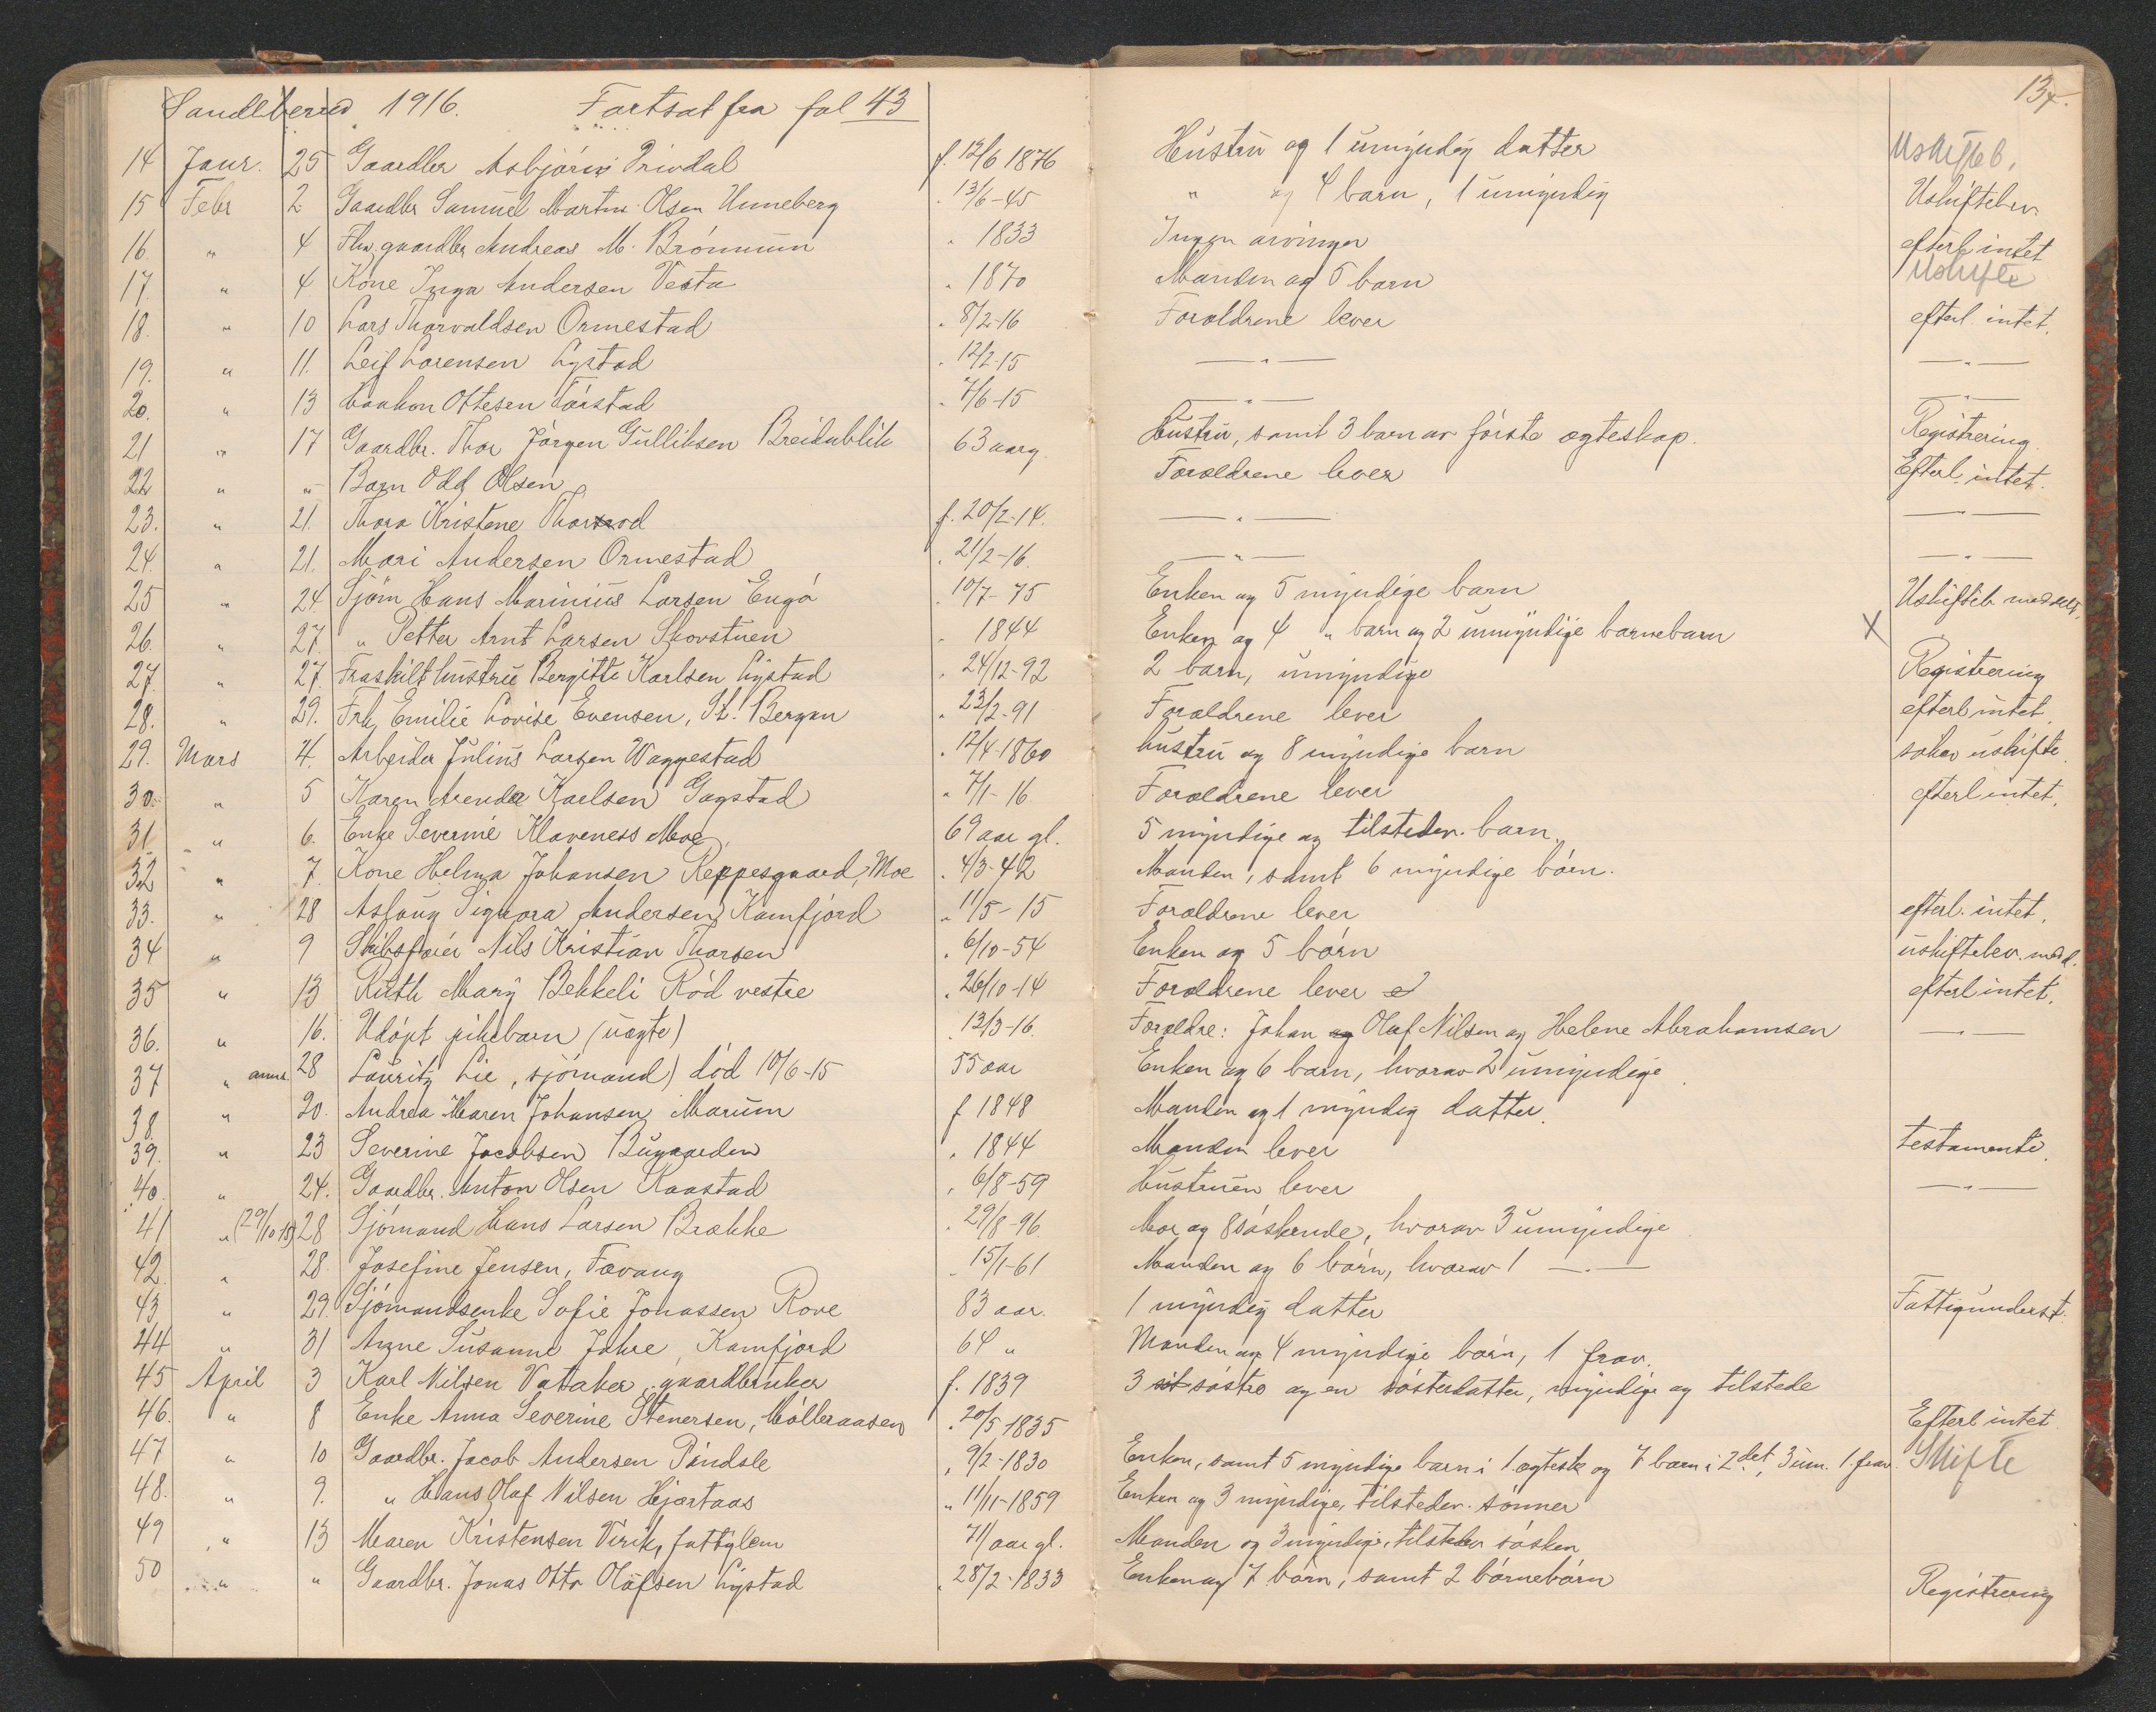 Sandeherred 1916. Fortsat fra fol 43
134.
14 Janr. 25 Gaardbr Asbjörn Privdal f. 12/6 1876 Hustru og 1 umyndig datter Uskifteb.
15 Febr 2 Gaardbr Samuel Martin Olsen Unneberg " 13/6-45 " og 4 barn, 1 umyndig Uskiftebev.
16. " 4 Fhv. gaardbr Andreas M. Brönnum " 1833 Ingen arvinger efterl intet
17. " 4 Kone Inga Andersen Vesta " 1870 Manden og 5 barn Uskifte
18. " 10 Lars Thorvaldsen Ormestad " 8/2-16 Forældrene lever efterl. intet.
19. " 11. Leif Lorensen Lystad " 12/2-15 — " — — " —
20. " 13 Haakon Ottesen Törstad " 7/6-15 — " — — " —
21 " 17 Gaardbr. Thor Jörgen Gulliksen Breidablik 63 aarg. Hustru, samt 3 barn av förste ægteskap. Registrering
22 " " Barn Odd Olsen Forældrene lever Efterl. intet.
23. " 21. Thora Kristene Thorsrod f. 20/2-14. — " — — " —
24. " 21. Mari Andersen Ormestad " 21/2-16. — " — — " —
25 " 24. Sjöm Hans Marinius Larsen Engö " 10/7-75 Enken og 5 myndige barn Uskifteb medd.
26. " 27. " Petter Arnt Larsen Skovstuen " 1844 Enken og 4 " barn og 2 umyndige barnebarn X
27. " 27. Fraskilt hustru Bergitte Karlsen Lystad " 24/12-92 2 barn, umyndige Registrering
28. " 29. Frk. Emilie Lovise Evensen, St. Bergan " 23/2-91 Forældrene lever efterl intet.
29. Mars 4. Arbeider Julius Larsen Waggestad " 12/4-1860 hustru og 8 myndige barn søker uskifte.
30. " 5 Karen Arenda Karlsen Gogstad " 7/1-16 Forældrene lever efterl intet.
31. " 6. Enke Severine Klaveness Moe 69 aar gl. 5 myndige og tilstedev. barn.
32 " 7. Kone Helma Johansen Reppesgaard, Moe " 4/3-42 Manden, samt 6 myndige börn.
33. " 28 Aslaug Signora Andersen Kamfjord " 11/5-15 Forældrene lever efterl. intet.
34 " 9 Skibsförer Nils Kristian Thorsen " 6/10-54 Enken og 5 börn uskiftebev. medd.
35 " 13 Ruth Mary Bekkeli Röd vestre " 26/10-14 Forældrene lever efterl intet.
36. " 16. Udöpt pikebarn (uægte) " 13/3-16. Forældre: Johan og Olaf Nilsen og Helene Abrahamsen — " —
37 " anm. 28 Lauritz Lie, sjömand) död 10/6-15 55 aar Enken og 6 barn, hvorav 2 umyndige.
38. " 20. Andrea Maren Johansen Marum f 1848 Manden og 1 myndig datter.
39. " 23 Severine Jacobsen Bugaarden " 1844 Manden lever testamente.
40. " 24. Gaardbr. Anton Olsen Raastad " 6/8-59 Hustruen lever — " —
41 " (29/10 15) 28 Sjömand Hans Larsen Brække " 29/8-96. Mor og 8 söskende, hvorav 3 umyndige
42. " 28. Josefine Jensen, Tovaug " 15/1-61 Manden og 6 börn, hvorav 1 — " —
43 " 29. Sjömandsenke Sofie Jonassen Rove 83 aar. 1 myndig datter Fattigunderst.
44 " 31 Anne Susanne Jahre, Kamfjord 64 " Manden og 4 myndige börn, 1 frav.
45 April 3 Karl Nilsen Vataker, gaardbruker f. 1839 3 söstre og en sösterdatter, myndige og tilstede
46. " 8 Enke Anna Severine Stenersen, Mölleraasen " 20/5 1835 Efterl intet.
47 " 10 Gaardbr. Jacob Andersen Pindsle " 9/2-1830 Enken, samt 5 myndige barn i 1. ægtesk og 7 barn i 2det, 3 um. 1. frav. Skifte
48. " 9. " Hans Olaf Nilsen Hjertaas " 11/11-1859 Enken og 3 myndige, tilstedev. sönner
49 " 13 Maren Kristensen Virik, fattiglem 71 aar gl. Manden og 3 myndige, tilstedev sösken
50 " " Gaardbr. Jonas Otto Olafsen Lystad " 28/2-1833 Enken og 7 börn, samt 2 börnebörn Registrering